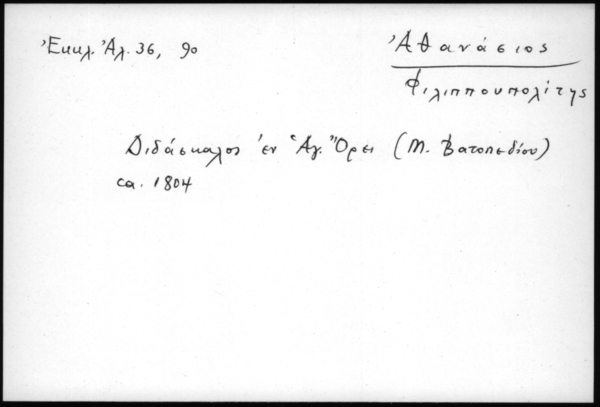 Ἐκκλ. Ἀλ. 36, 90
Ἀθανάσιος
Φιλιππουπολίτης
Διδάσκαλος ἐν Ἁγ. Ὄρει (Μ. Βατοπεδίου)
ca. 1804